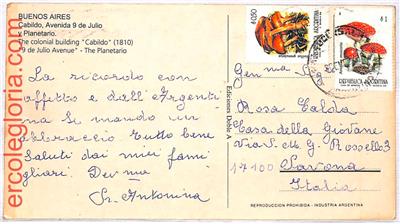 BUENOS AIRES
Cabildo, Avenida 9 de Julio
x Planetario.
The colonial building "Cabildo" (1810)
"9 de Julio Avenue" - The Planetario
La ricordo con
affetto e dall'Argenti
na Le mando un
abbraccio tutto bene
Saluti dai miei fami
gliari Dev.ma
Sr. Antonina
Ediciones Doble A
Gen.ma
Rosa Calda
Casa della Giovane
Via S. M. G. Rossello 3
17100 Savona
Italia
REPUBLICA ARGENTINA
REPRODUCCION PROHIBIDA - INDUSTRIA ARGENTINA
ercolegloria.com